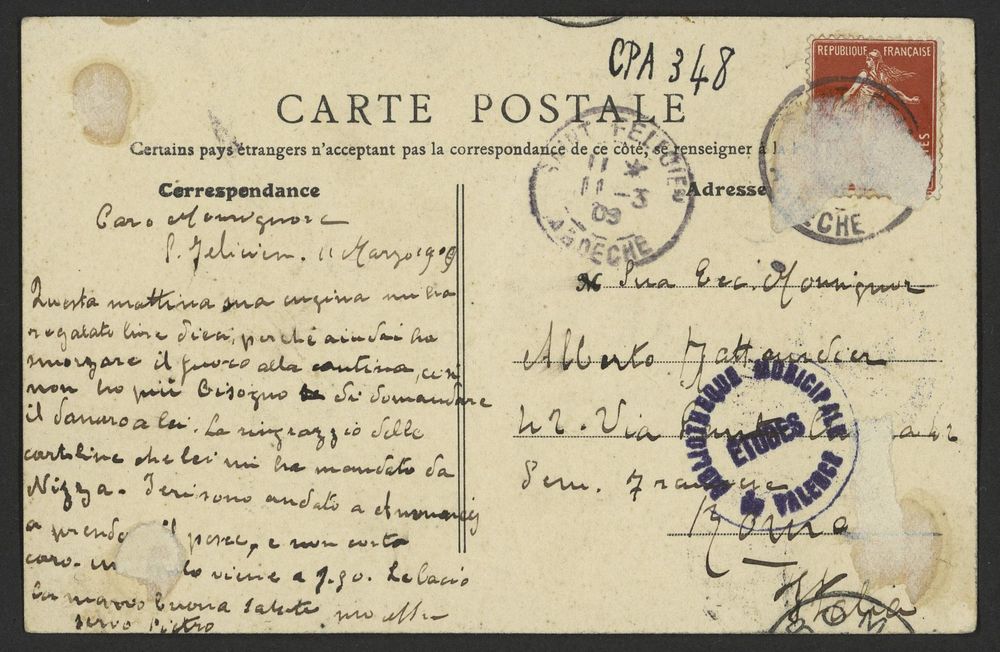 CPA 348
REPUBLIQUE FRANÇAISE
CARTE POSTALE
Certains pays étrangers n'acceptent pas la correspondance de ce côté, se renseigner à la
Correspondance
Adresse
SAINT FELICIEN
11 *
11 - 3
09
ARDECHE
ECHE
Caro Monsignore
S. Felicien. 11 Marzo 1909
Questa mattina sua cugina mi ha
regalato lire dieci, perché aiutai ha
smorzare il fuoco alla cantina, cosi
non ho più bisogno di domandare
il danaro a lei. La ringrazzio delle
cartoline che lei mi ha mandato da
Nizza. Ieri sono andato a Annonay
a prende il pesce, e non costa
caro. lo viene a 7.90. Le bacio
la mano buona salute suo aff
servo Pietro
Sua Ecc. Monsignor
Alberto
42. Via 42
Sem. Francese
Roma
Italia
BIBLIOTHEQUE MUNICIPALE
ETUDES
DE VALENCE
ROM